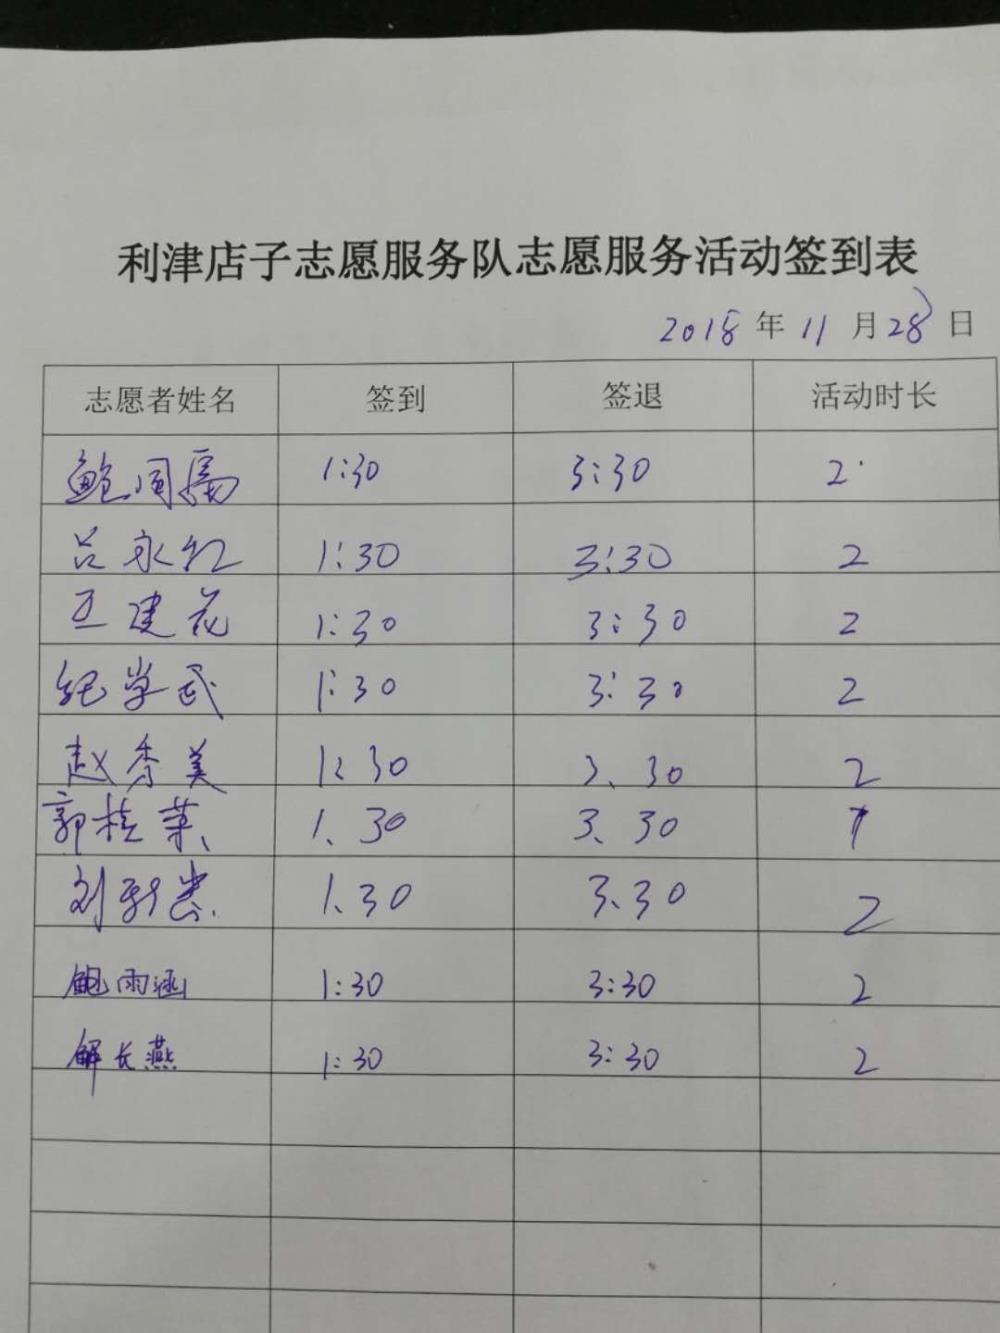 利津店子志愿服务队志愿服务活动签到表
2018年11月28日
志愿者姓名 签到 签退 活动时长
鲍同禹 1:30 3:30 2
吕永红 1:30 3:30 2
王建花 1:30 3:30 2
纪学武 1:30 3:30 2
赵秀美 1:30 3、30 2
郭桂英 1、30 3、30
刘新 1、30 3、30 2
鲍雨涵 1:30 3:30 2
解长燕 1:30 3:30 2